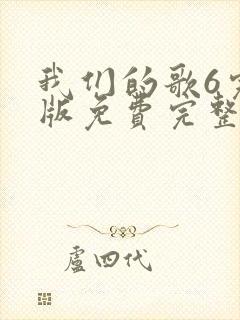 我们的歌6完
版免费完整
盧四代